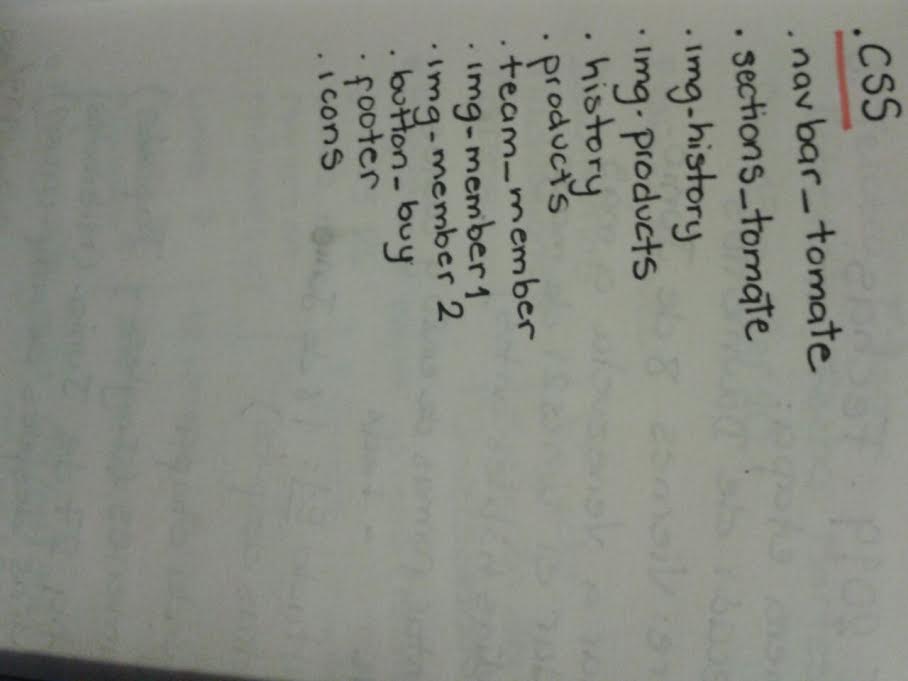 .CSS
.navbar_tomate
.sections_tomate
.img-history
.img.products
.history
.products
.team_member
.img-member1
.img-member2
.button_buy
.footer
.icons